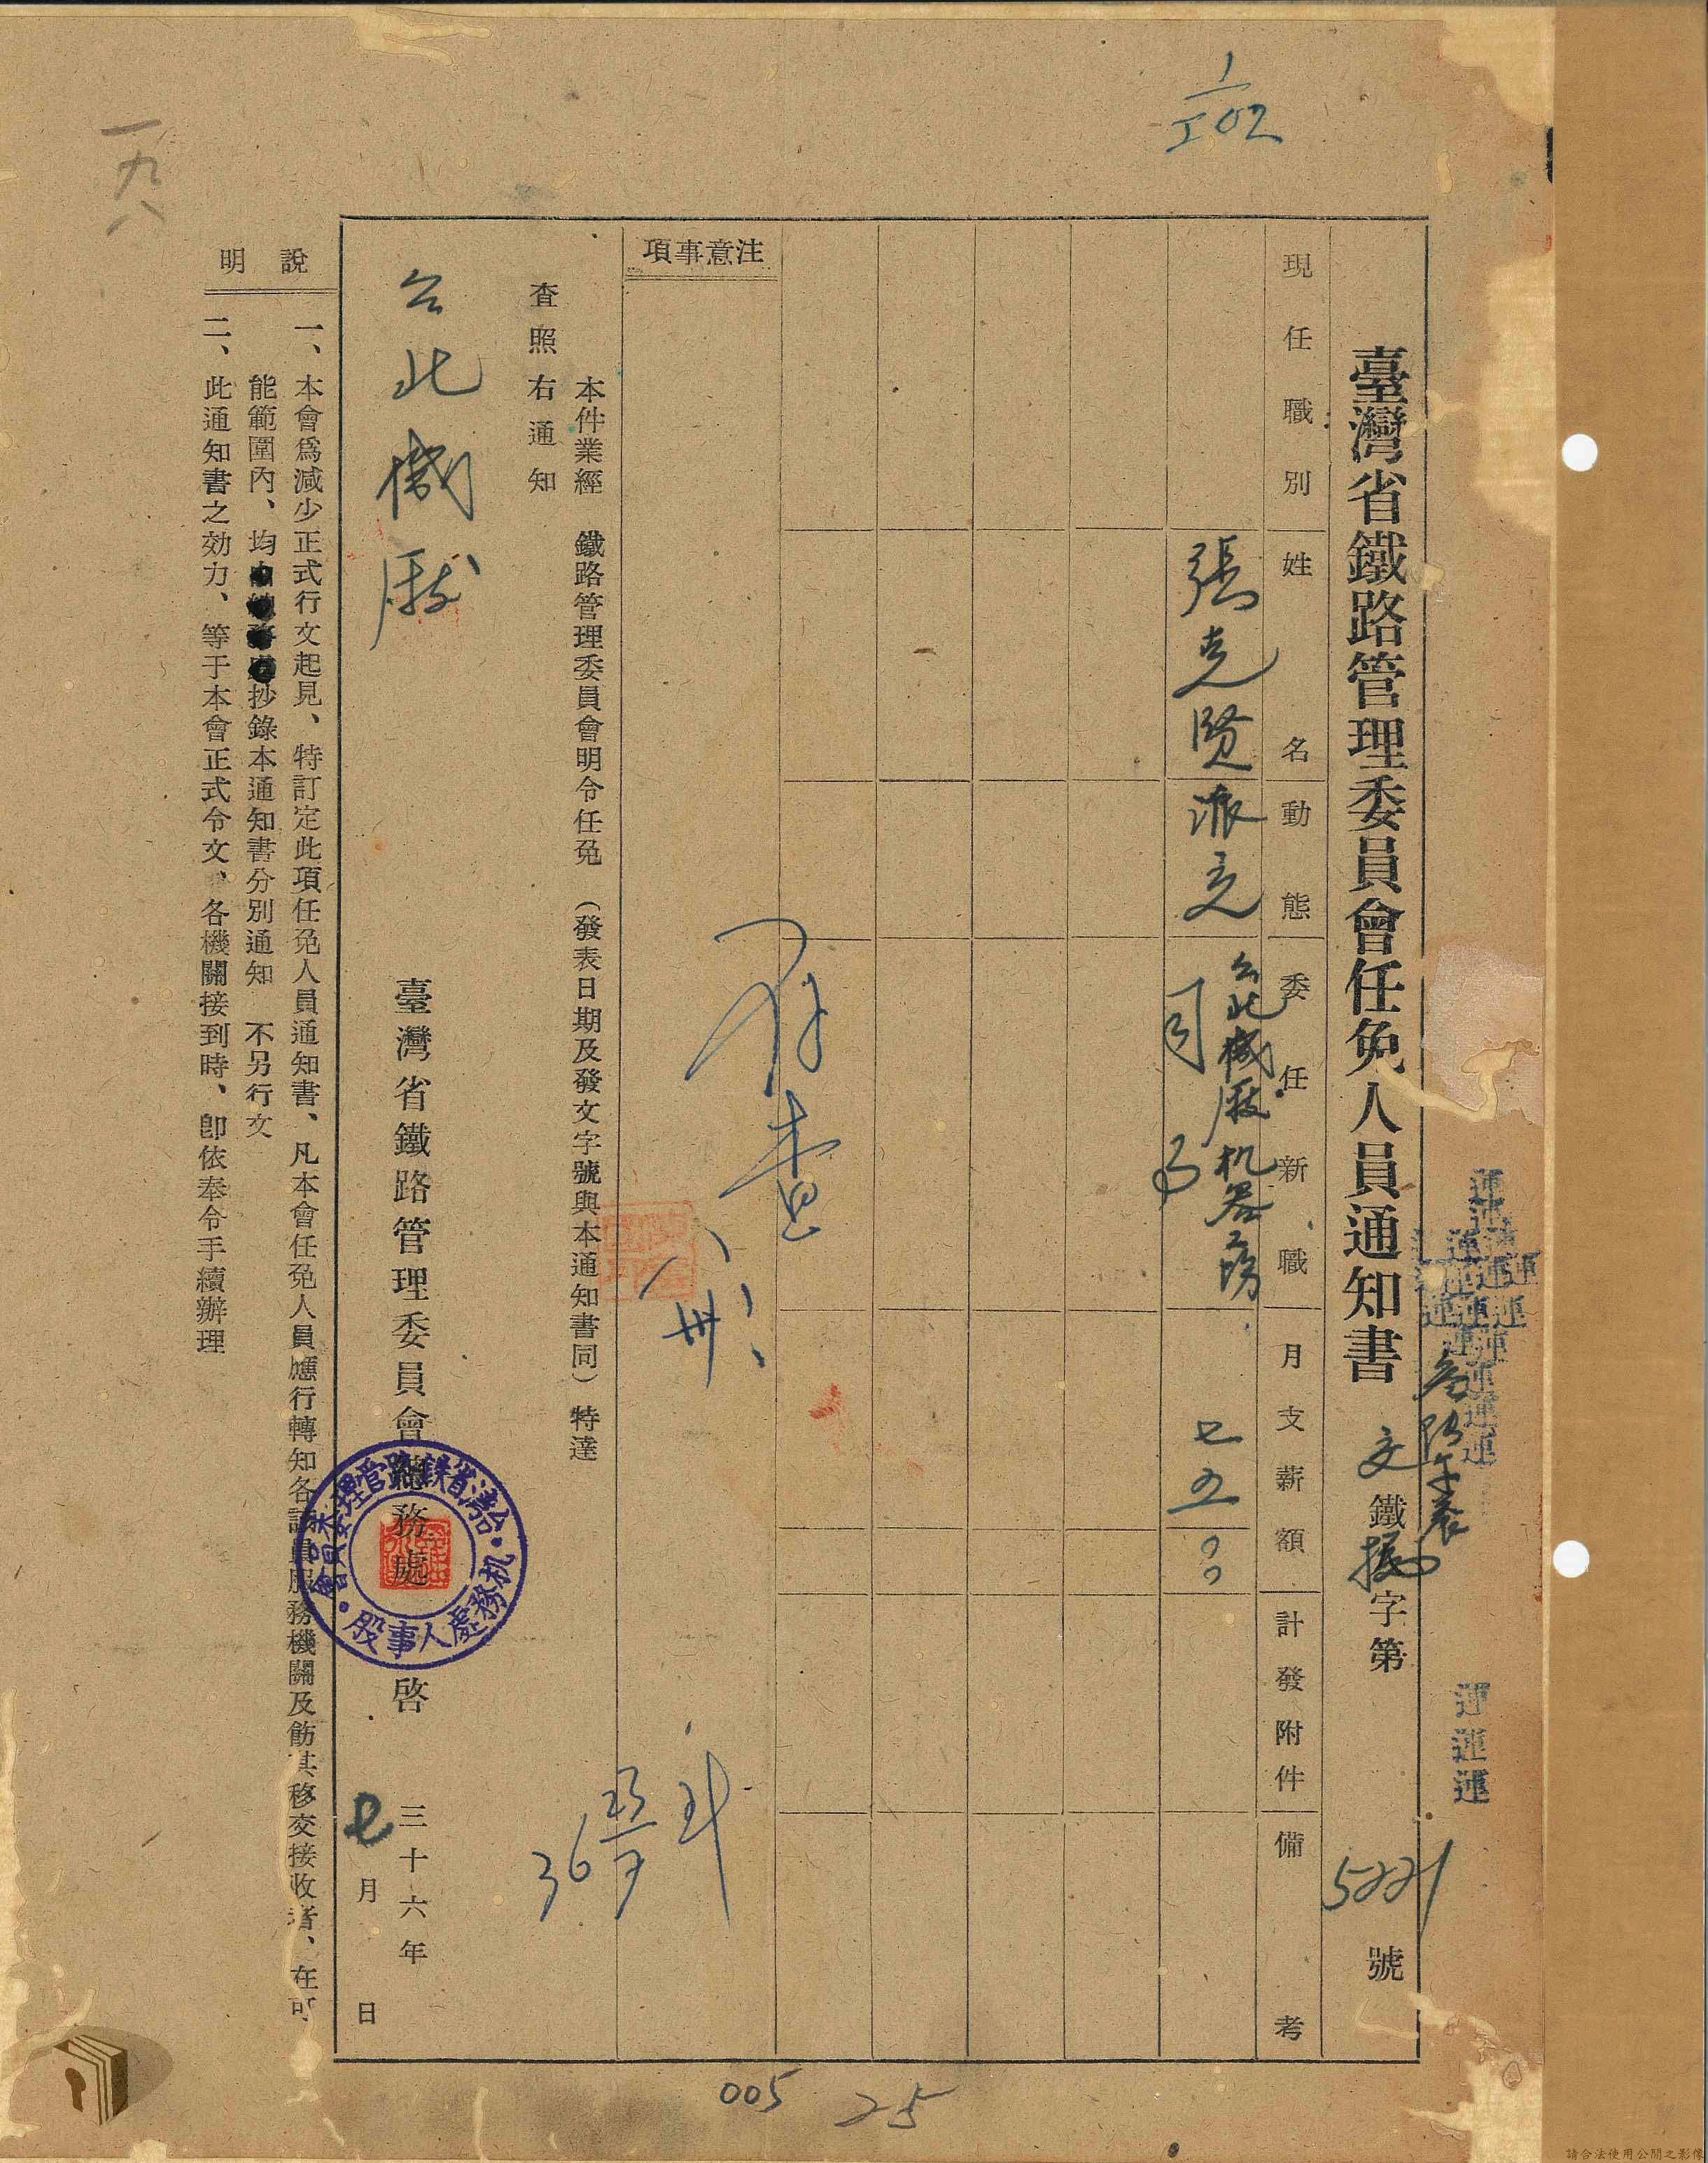 1/I02
臺灣省鐵路管理委員會任免人員通知書 文鐵 字第5221號
現任職別 姓名 動態 委任新職 月支薪額 計發附件 備考
張克賢 派充 台北機厰机器場 司 七五〇〇
注意事項
本件業經 鐵路管理委員會明令任免 (發表日期及發文字號與本通知書同) 特達
查照右通知
台北機厰
臺灣省鐵路管理委員會總務處啓 三十六年
七月 日
台湾省鉄路管理委員會
机務處人事股
說明
一、本會爲減少正式行文起見、特訂定此項任免人員通知書、凡本會任免人員應行轉知各該員服務機關及飭其移交接收者、在可
能範圍內、均 抄錄本通知書分別通知 不另行文
二、此通知書之効力、等于本會正式令文、各機關接到時、卽依奉令手續辦理
一九八
運運運
005
25
請合法使用公開之影像